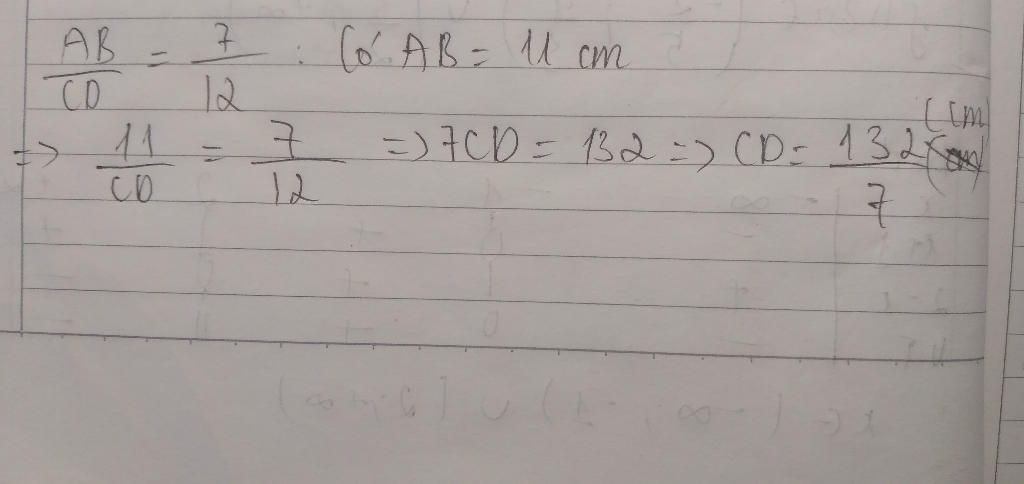 AB/CD = 7/12 : Có AB = 11 cm
=> 11/CD = 7/12 => 7CD = 132 => CD = 132/7 (cm)
x ∈ (-∞; -1) ∪ [2; +∞)